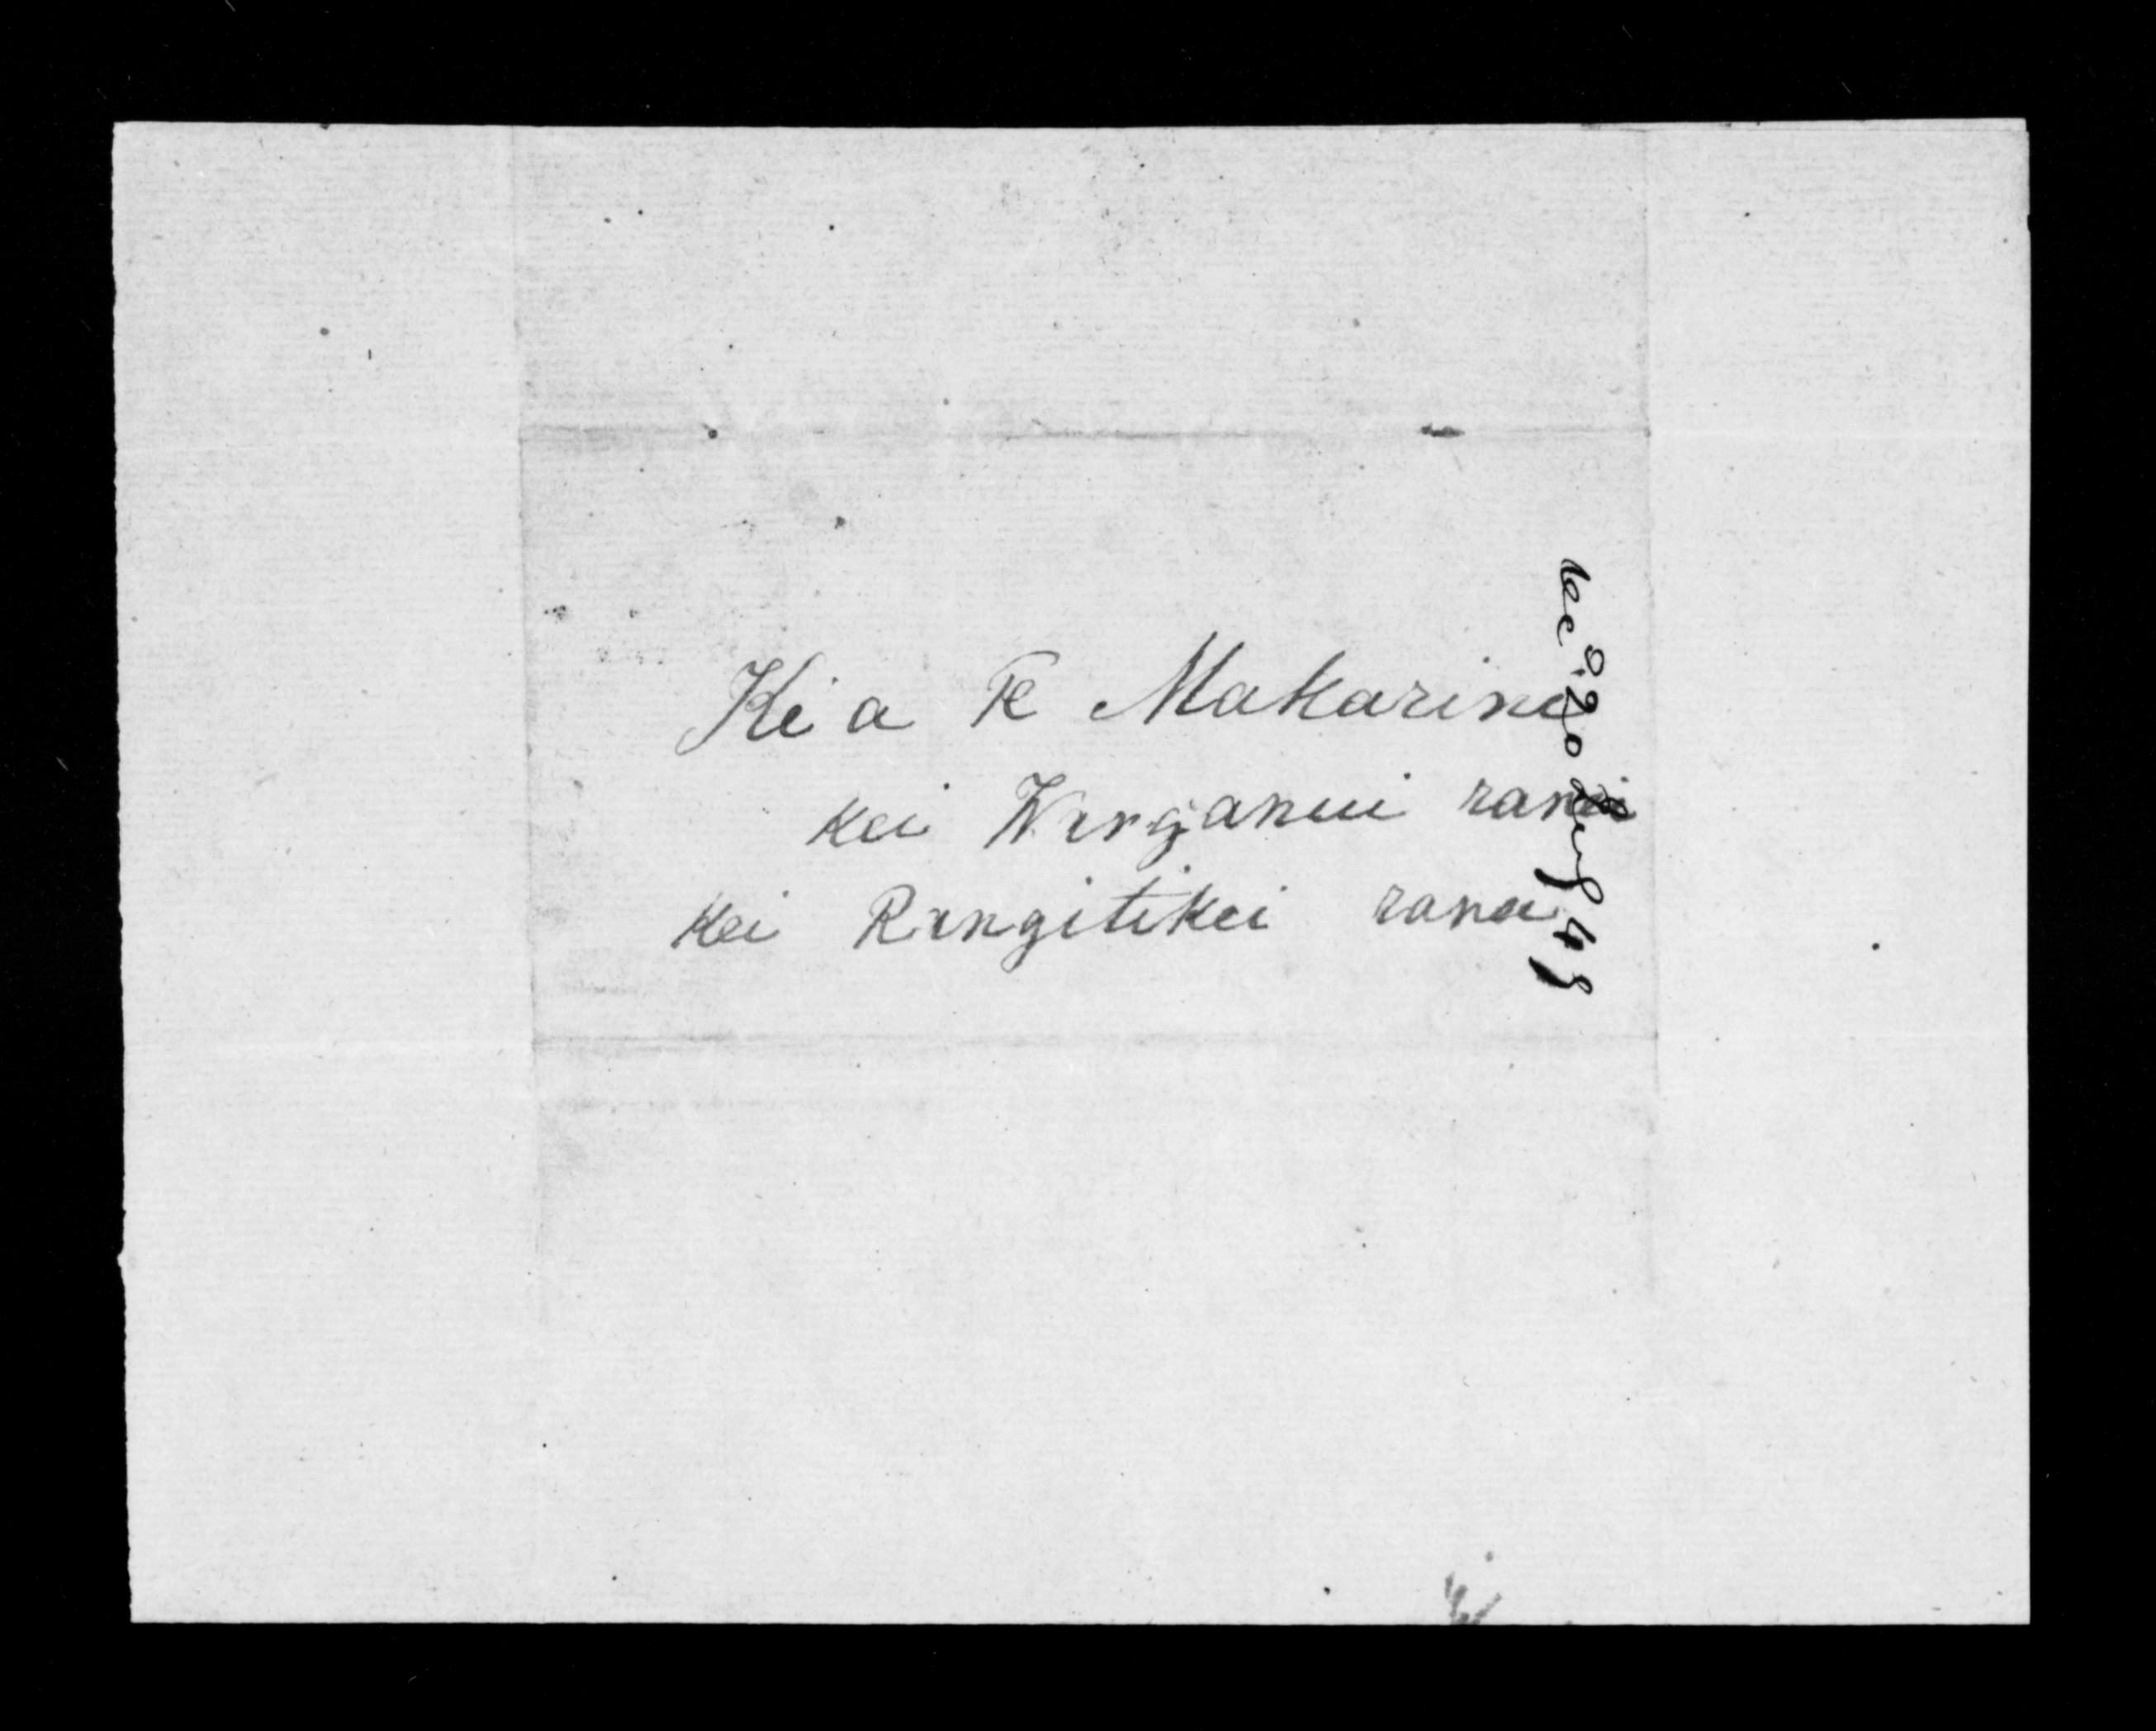 Ki a Te Makarini
kei Wanganui rania
kei Rangitikei rania
Recd 20 Aug 49